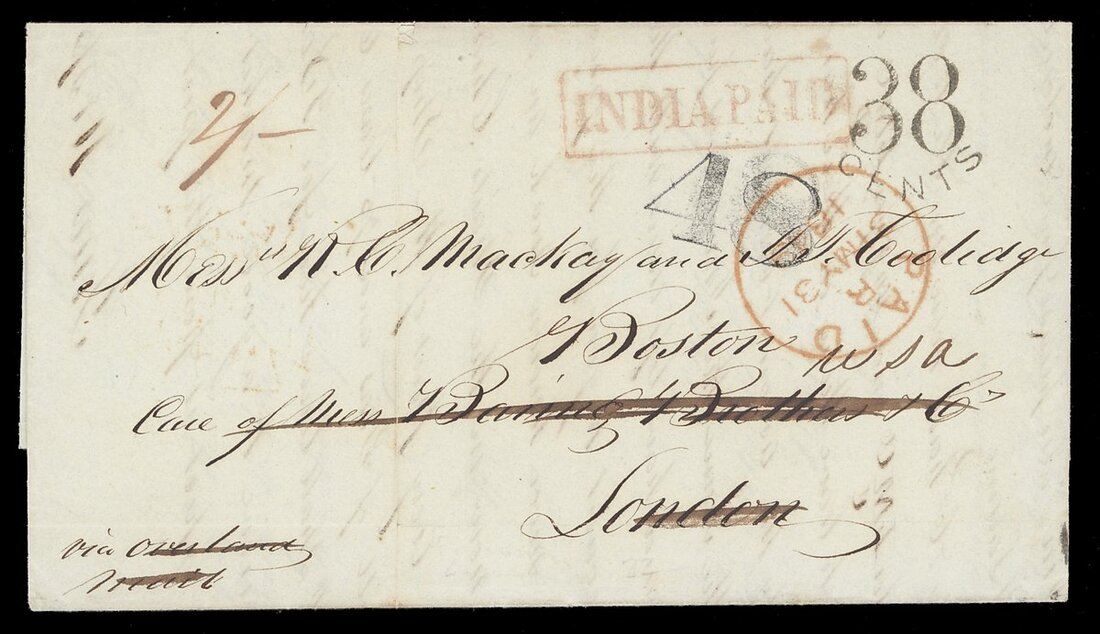 2/-
INDIA PAID
38
CENTS
48
PAID
31 MY 31
Messrs R. C. Mackay and J. T. Coolidge
Boston
U S A
Care of Mess Baring Brothers & Co
London
via overland
mail